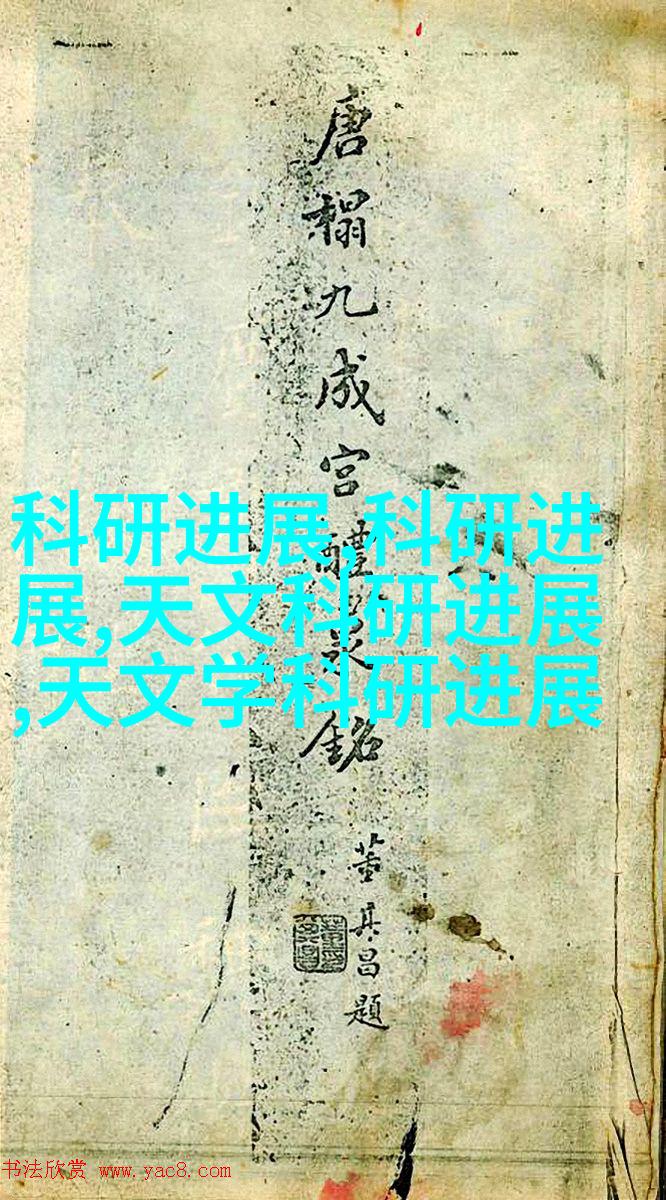 唐榻九成宮醴泉銘
董其昌題
科研进展,科研进
展,天文科研进展
,天文学科研进展
书法欣赏 www.yac8.com